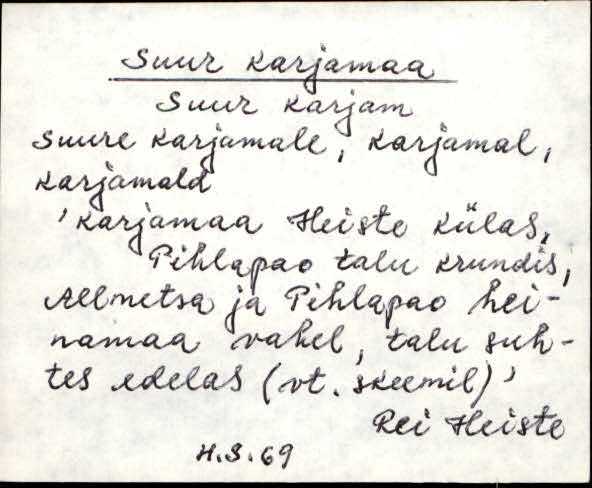 Suur karjamaa
Suur karjam
Suure karjamale, karjamal,
karjamald
'karjamaa Heiste külas,
Pihlapao talu krundis,
Allmetsa ja Pihlapao hei-
namaa vahel, talu suh-
tes edelas (vt. skeemil)'
Rei Heiste
H.S.69